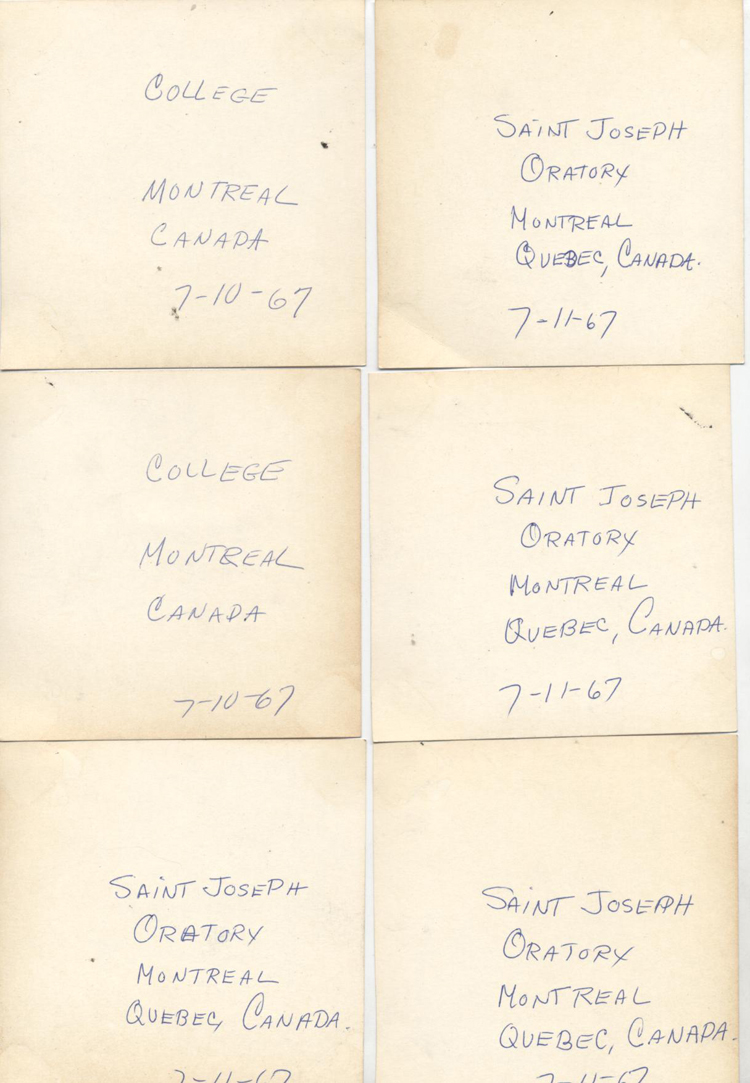 COLLEGE
MONTREAL
CANADA
7-10-67
SAINT JOSEPH
ORATORY
MONTREAL
QUEBEC, CANADA.
7-11-67
COLLEGE
MONTREAL
CANADA
7-10-67
SAINT JOSEPH
ORATORY
MONTREAL
QUEBEC, CANADA.
7-11-67
SAINT JOSEPH
ORATORY
MONTREAL
QUEBEC, CANADA.
7-11-67
SAINT JOSEPH
ORATORY
MONTREAL
QUEBEC, CANADA.
7-11-67